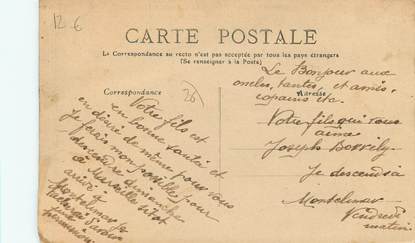 12-6
CARTE POSTALE
La Correspondance au recto n'est pas acceptée par tous les pays étrangers
(Se renseigner à la Poste)
Correspondance
26
Votre fils est
en bonne santé et
en désire de même pour vous
Je ferais mon possible pour
descendre dimanche
à Marseille
arrivé
Montelimar
Le Bonjour aux
oncles, tantes, et amis,
copains etc.
Adresse
Votre fils qui vous
aime
Joseph
Je descends à
Montelimar
Vendredi
matin